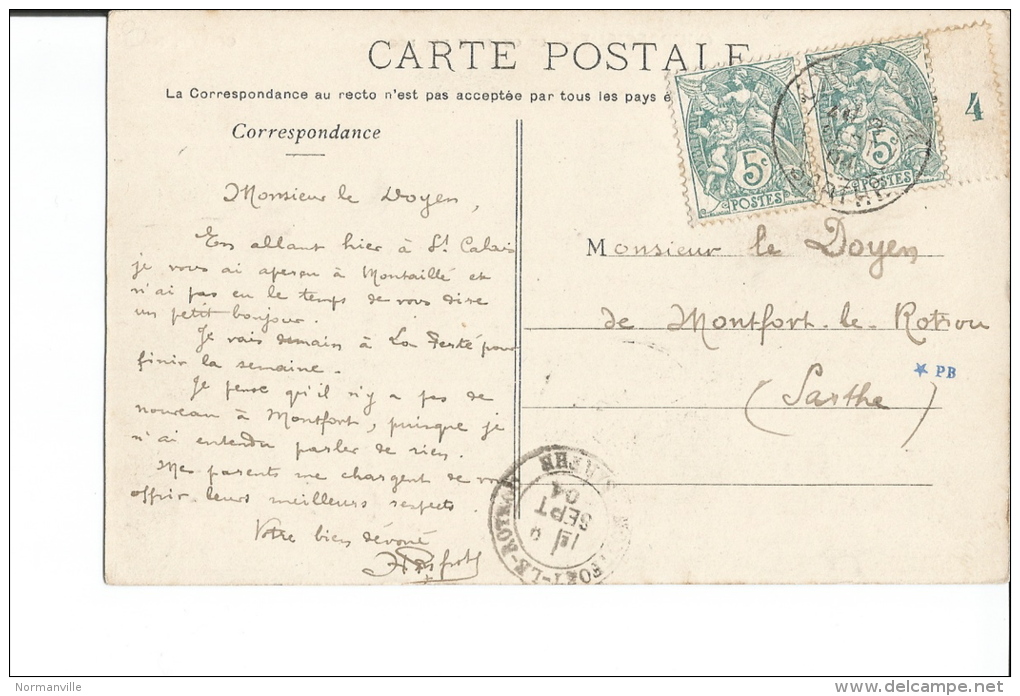 CARTE POSTALE
La Correspondance au recto n'est pas acceptée par tous les pays
Correspondance
5c
POSTES
5c
POSTES
4
Monsieur le Doyen,
En allant hier à St Calais
je vous ai aperçu à Montaillé et
n'ai pas eu le temps de vous dire
un petit bonjour.
Je vais demain à La Ferté pour
finir la semaine.
Je pense qu'il n'y a pas de
nouveau à Montfort, puisque je
n'ai entendu parler de rien.
Mes parents me chargent de vous
offrir leurs meilleurs respects.
Votre bien dévoué
Monsieur le Doyen
de Montfort-le-Rotrou
(Sarthe)
PB
SARTHE
9
SEPT
04
FORT-LE-ROTROU
Normanville
delcampe.net